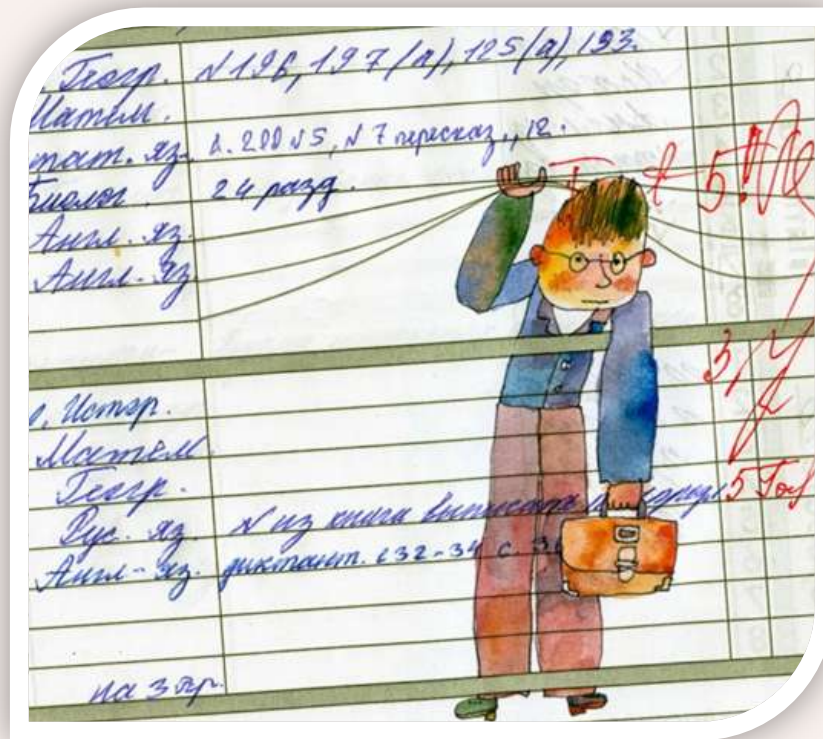 Геогр. N 196, 197 (а), 125 (а), 193.
Матем.
тат. яз. N5, N 7 пересказ, 12.
Биолог. 24 разд.
Англ. яз.
Англ. яз
5
3
Истор.
Матем
Геогр. 5
Рус. яз. N из книги выписать
Англ-яз. диктант. с 32-34 с. 3
на 3 тр.